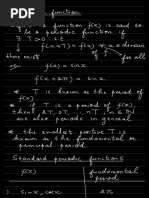 function
a function f(x) is said to
be a periodic function if
∃ T>0 st
f(x+T) = f(x) ∀ x ∈ domain
there exists of f for all
eg
f(x) = sin x
f(x+2π) = sin x
T is known as the period of
f(x)
* if T is a period of f(x),
then 2T, 3T, -T, nT
are also periods in general.
* the smallest positive T is
known as fundamental or
principal period
Standard periodic functions
f(x) fundamental
period
1) sin x, cos x 2π